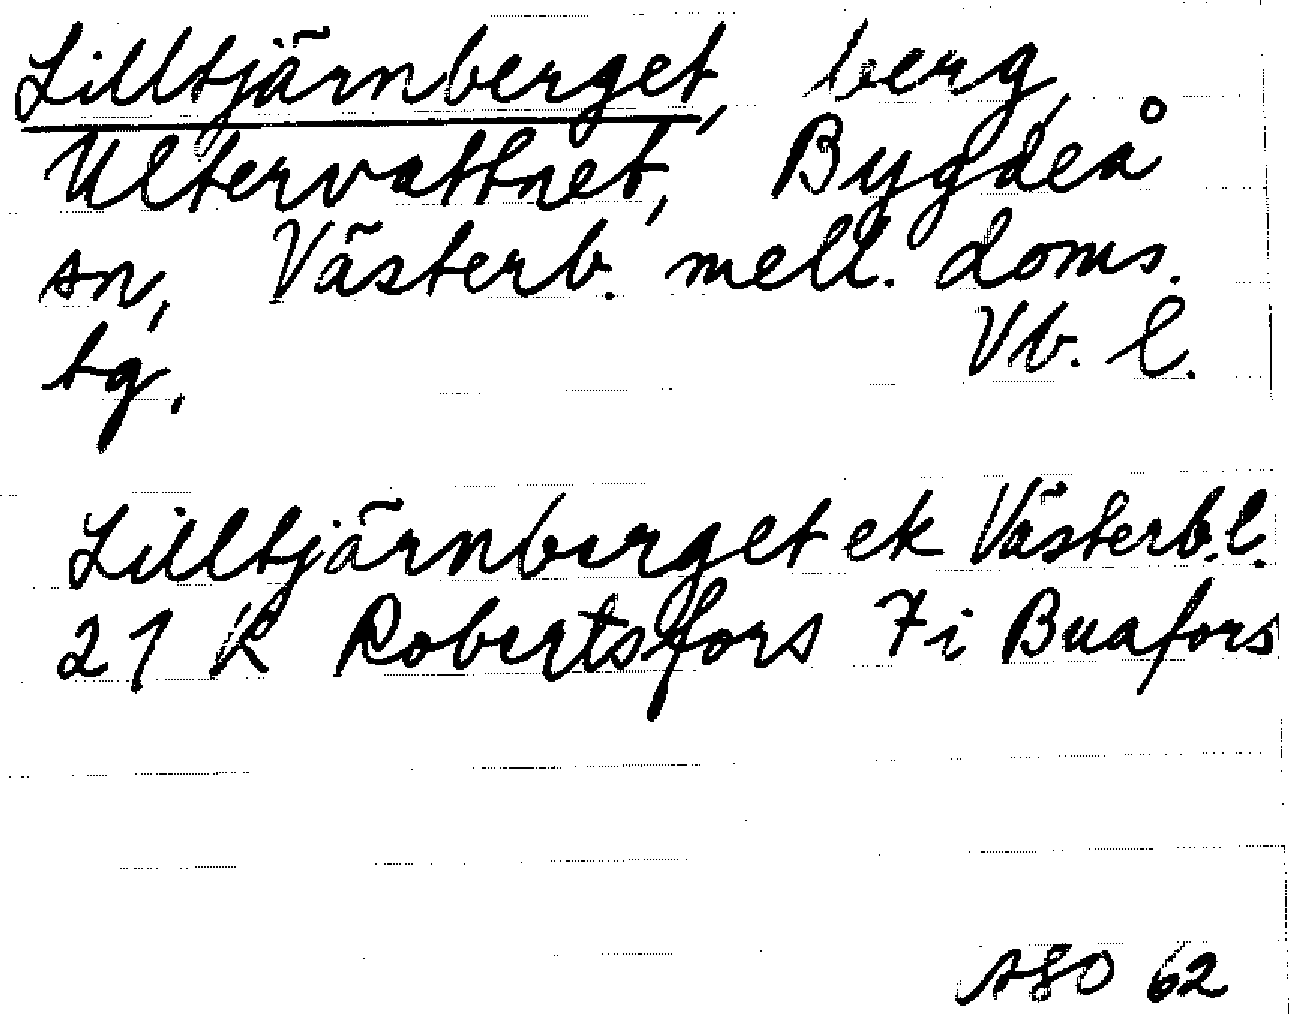 Lilltjärnberget, berg,
Ultervattnet, Bygdeå
sn, Västerb. mell. doms.
tg. Vb. l.
Lilltjärnberget ek Västerb. l.
21 K Robertsfors 7 i Buafors
ASO 62